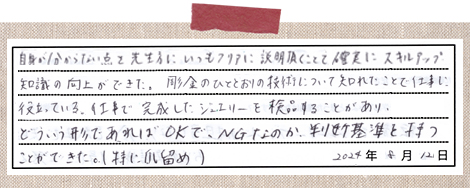 自身が分からない点を先生方にいつもクリアに説明頂くことで確実にスキルアップ
知識の向上ができた。彫金のひととおりの技術について知れたことで仕事に
役立っている。仕事で完成したジュエリーを検品することがあり、
どういう形であればOKで、NGなのか、判断基準を持つ
ことができた。(特に爪留め) 2024年8月12日